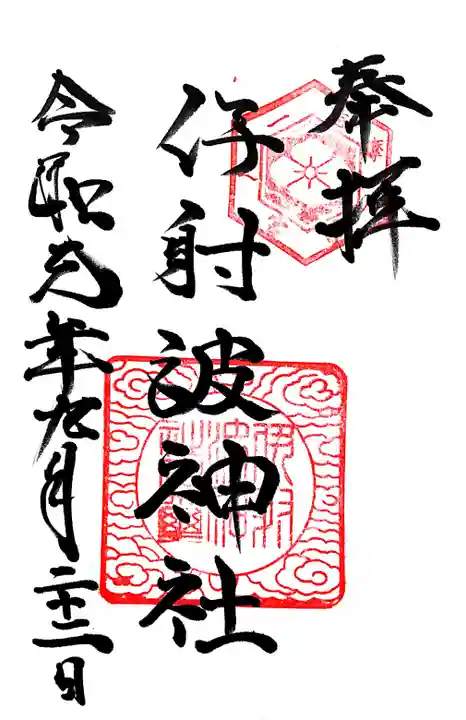 奉拝
伊射波神社
令和元年九月二十二日